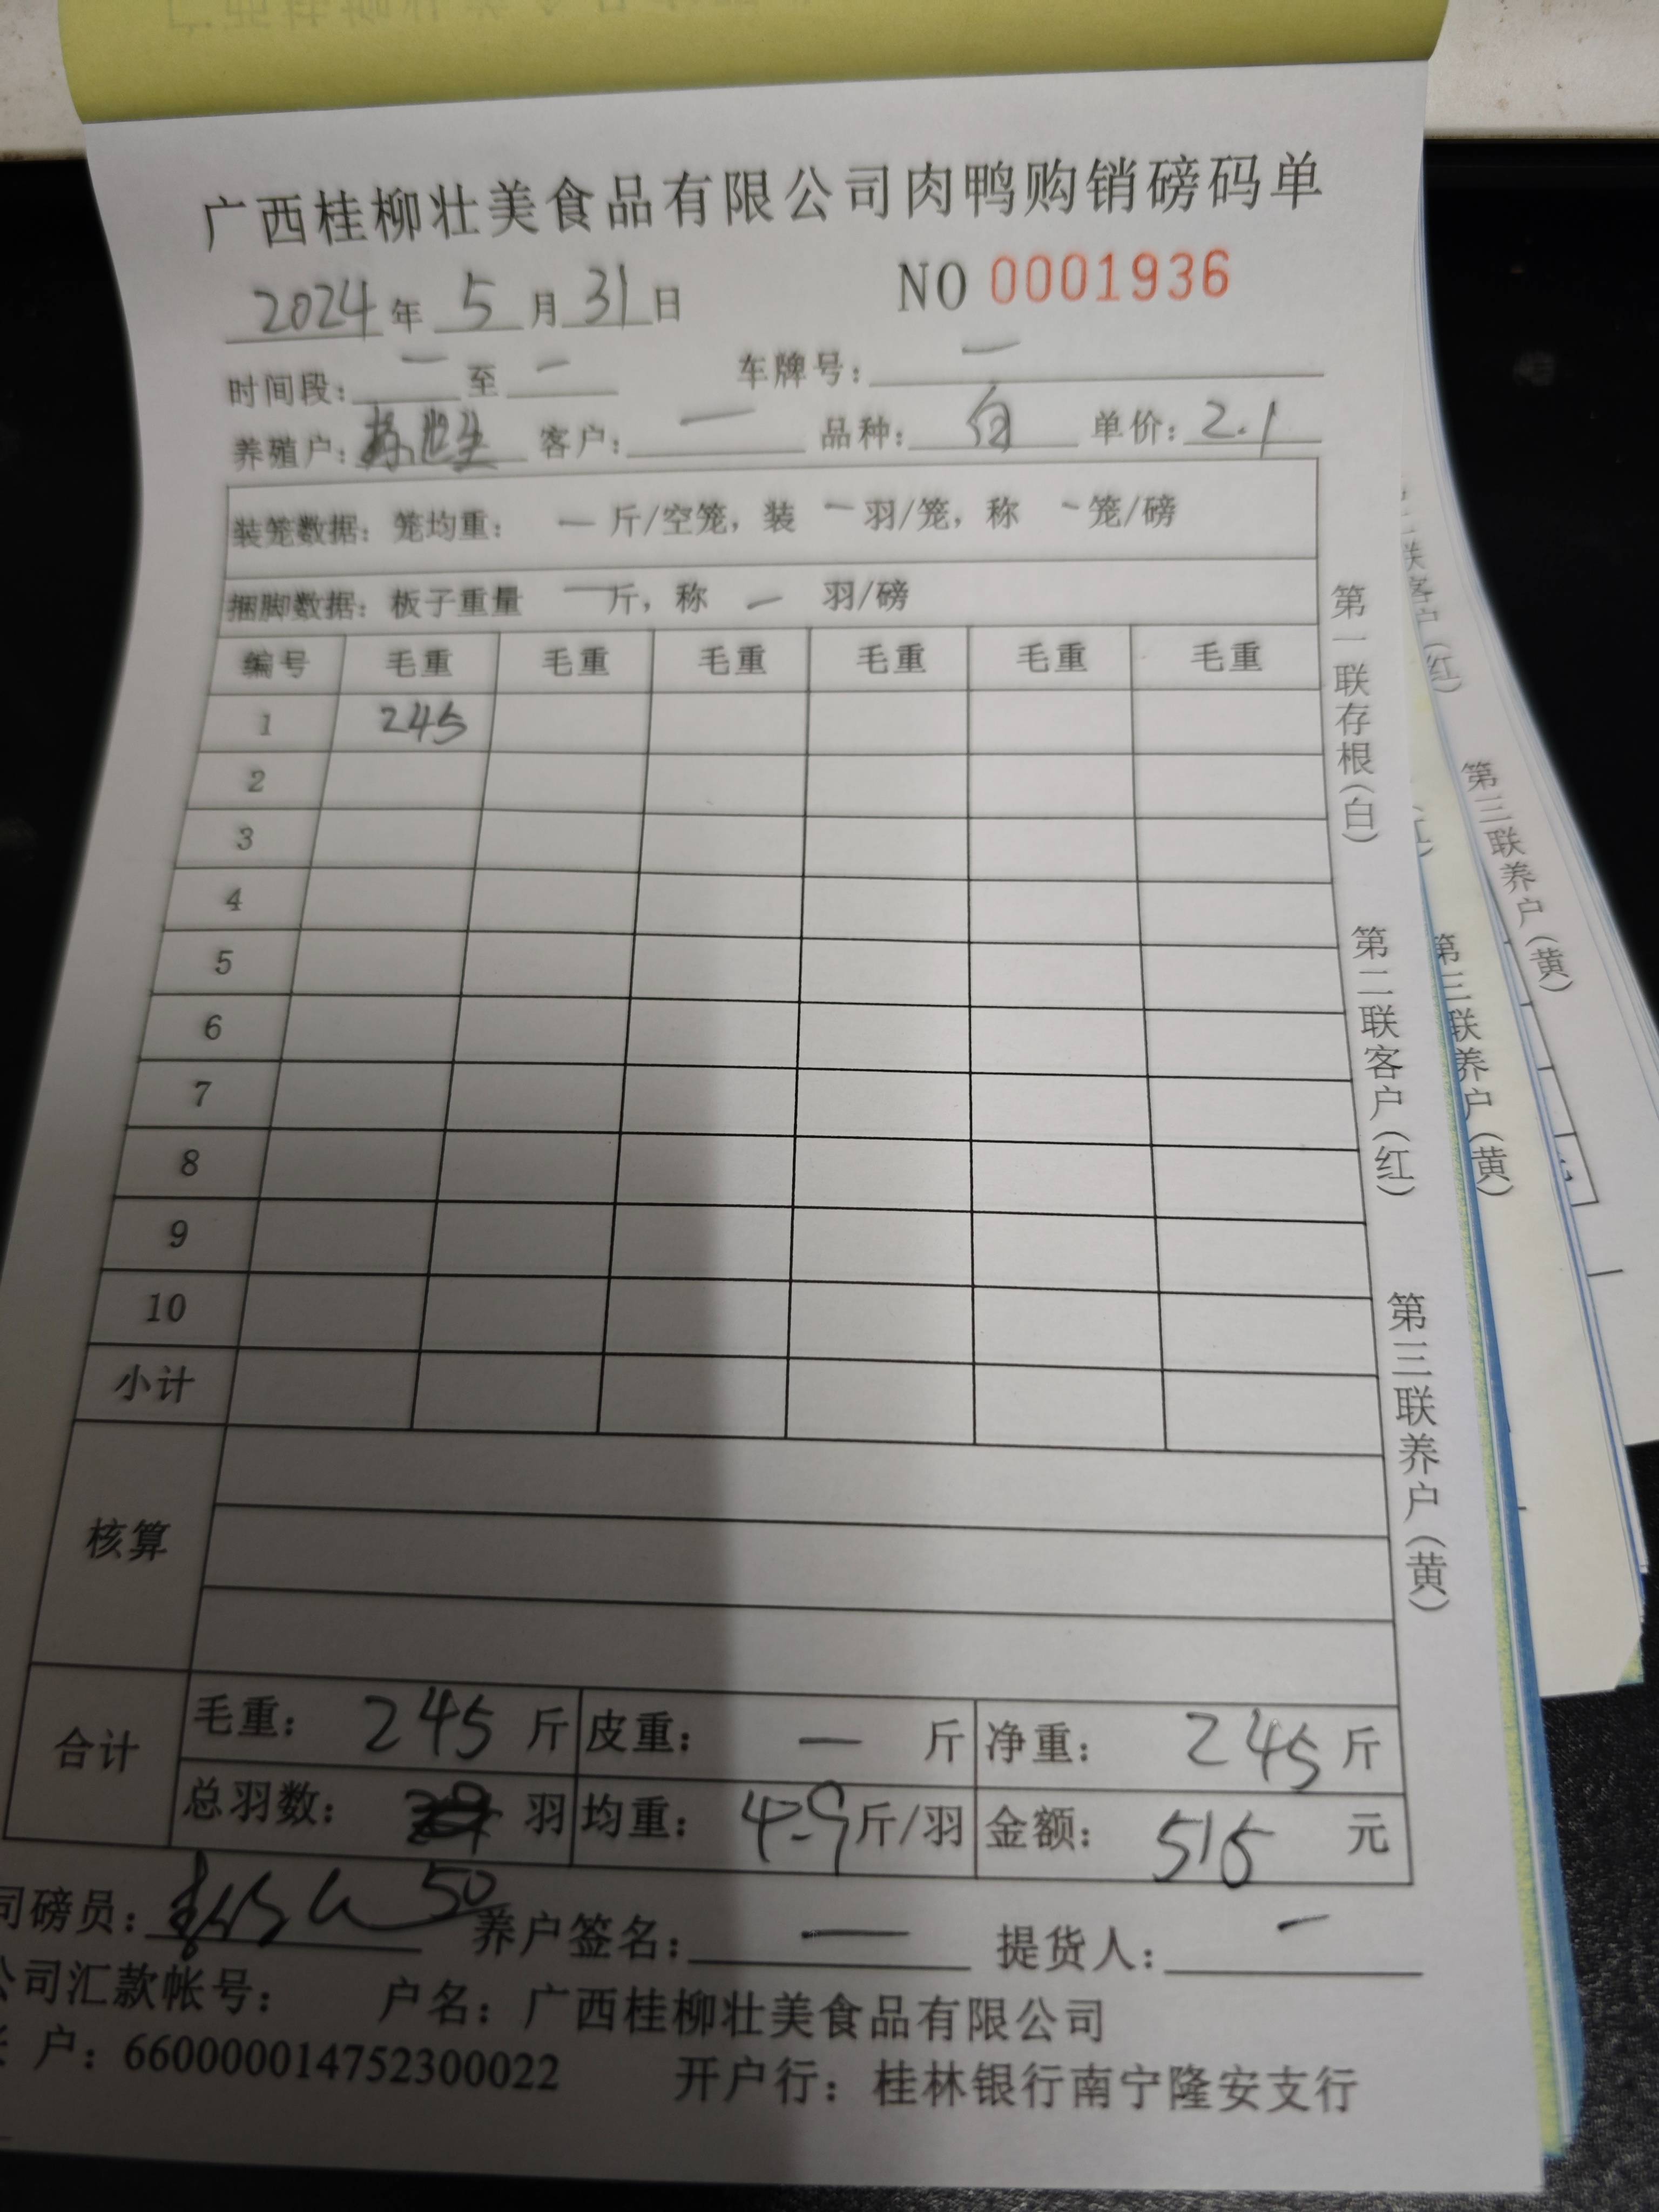 广西桂柳壮美食品有限公司肉鸭购销磅码单
2024年 5月31日 NO 0001936
时间段：— 至 — 车牌号：—
养殖户： 客户：— 品种：白 单价：2.1
装笼数据：笼均重： — 斤/空笼，装 — 羽/笼，称 - 笼/磅
捆脚数据：板子重量 — 斤，称 — 羽/磅
编号 毛重 毛重 毛重 毛重 毛重 毛重
1 245
2
3
4
5
6
7
8
9
10
小计
核算
合计
毛重：245斤 皮重：— 斤 净重：245斤
总羽数： 羽 均重：4.9斤/羽 金额：515 元
50
司磅员： 养户签名：— 提货人：—
公司汇款帐号： 户名：广西桂柳壮美食品有限公司
户：660000014752300022 开户行：桂林银行南宁隆安支行
第一联存根（白）
第二联客户（红）
第三联养户（黄）
联客户（红）
第三联养户（黄）
第三联养户（黄）